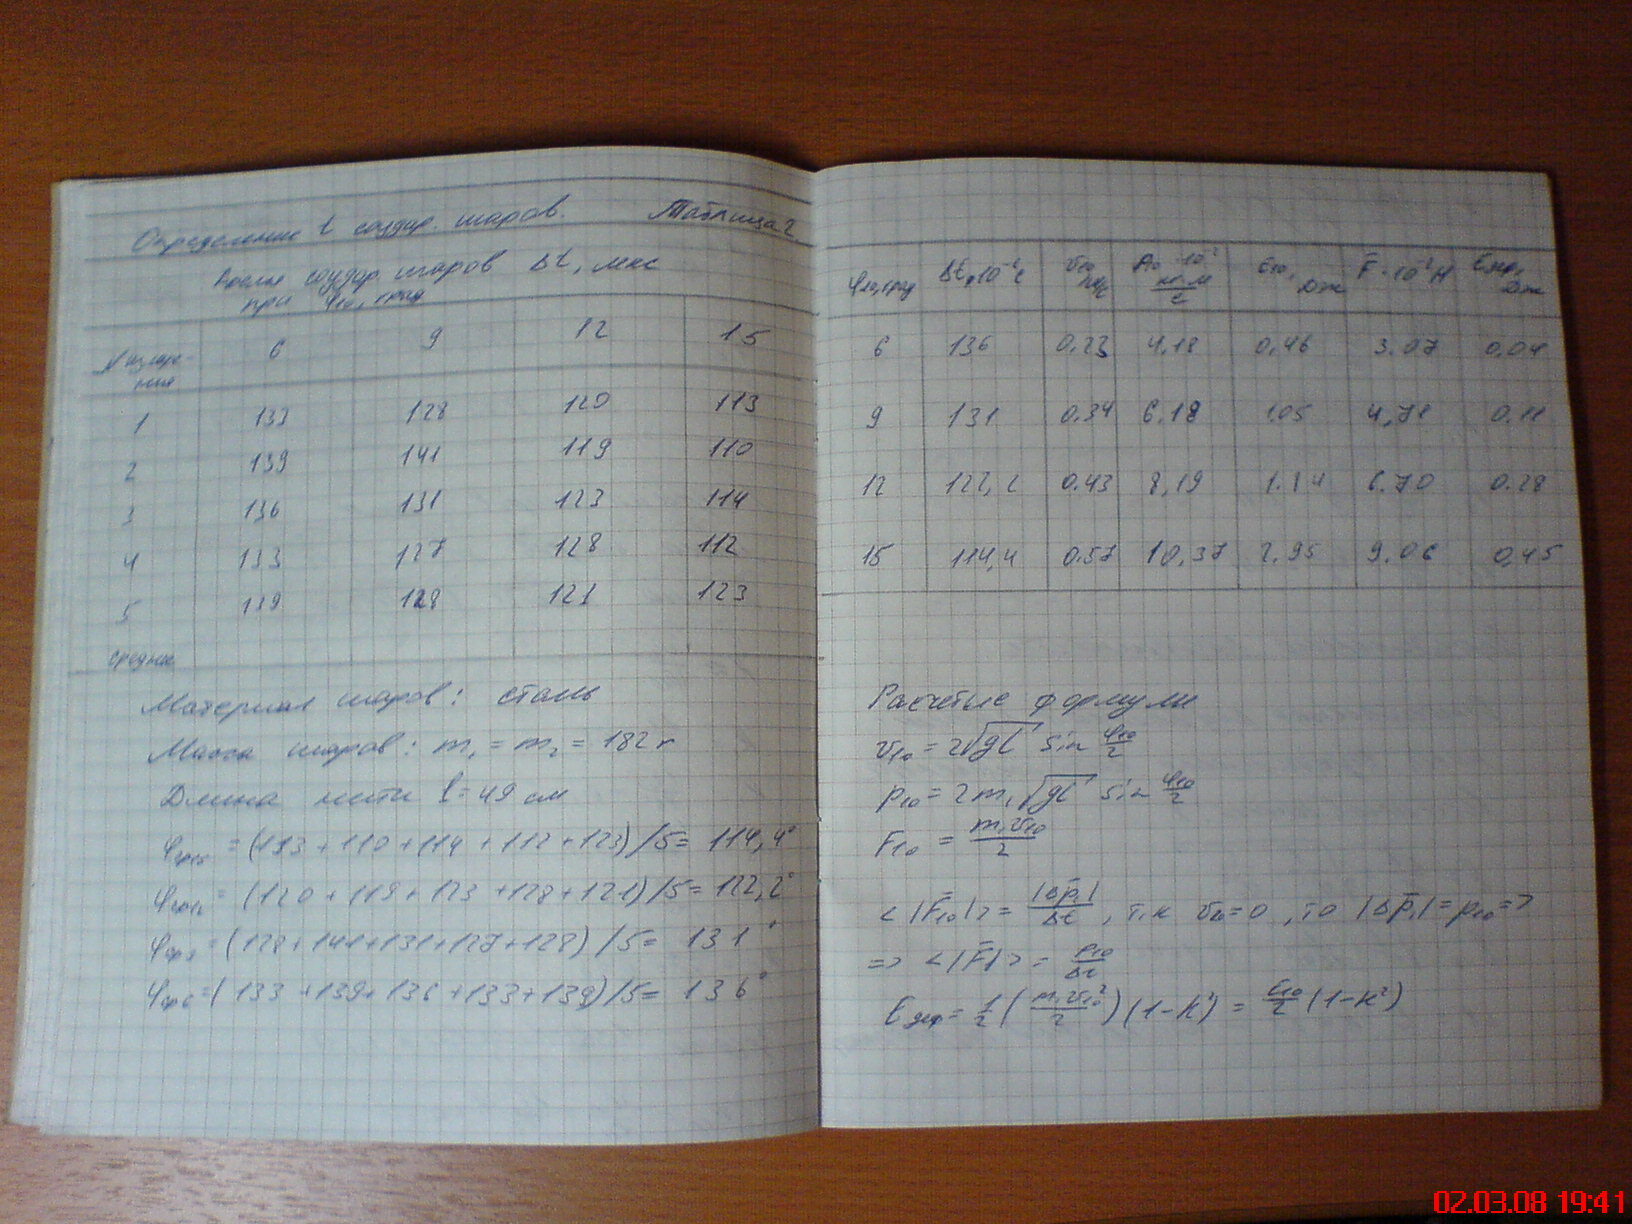 Определение t соудар. шаров. Таблица 2.
Время соудар шаров Δt, мкс
при φ₁₀, град
N измере-
ния
6 9 12 15
1 133 128 120 113
2 139 141 119 110
3 136 131 123 114
4 133 127 128 112
5 139 128 121 123
средние
Материал шаров: сталь
Масса шаров: m₁ = m₂ = 182 г
Длина нити l = 49 см
φср15 = (113 + 110 + 114 + 112 + 123)/5 = 114,4°
φср12 = (120 + 119 + 123 + 128 + 121)/5 = 122,2°
φср9 = (128 + 141 + 131 + 127 + 128)/5 = 131°
φср6 = (133 + 139 + 136 + 133 + 139)/5 = 136°
φ₁₀, град
6 136 0.23 4,18 0,46 3.07 0,04
9 131 0.34 6.18 1.05 4,71 0.11
12 122,2 0.43 8,19 6.70 0.28
15 114,4 0.57 10,37 2.95 9.06 0,45
Расчетые формулы
v₁₀ = 2√gl sin φ₁₀/2
p₁₀ = 2m₁√gl sin φ₁₀/2
E₁₀ = m₁v₁₀/2
<|F̄₁₀|> = |Δp̄₁|/Δt, т.к v₂₀=0, то |Δp̄₁| = p₁₀ =>
=> <|F̄|> = p₁₀/Δt
Eдеф = 1/2 (m₁v₁₀²/2)(1-k²) = E₁₀/2 (1-k²)
02.03.08 19:41